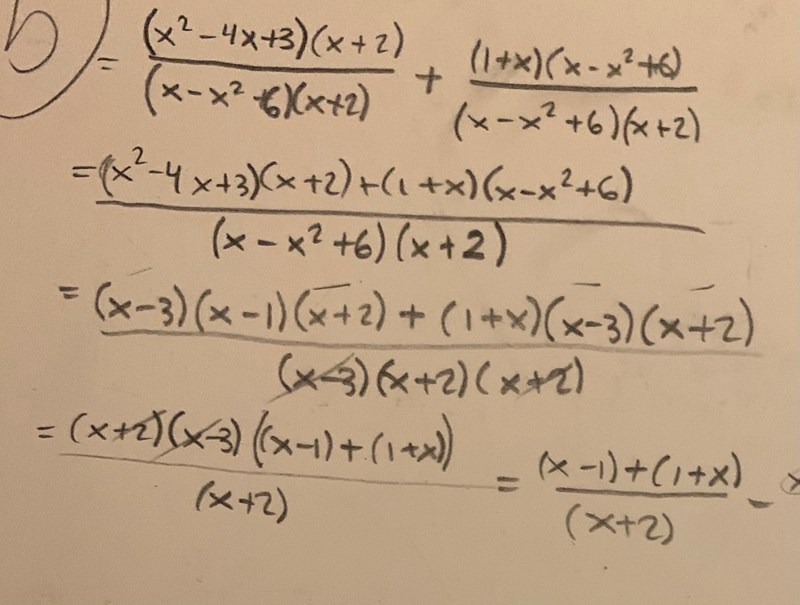 b) = \frac{(x^2-4x+3)(x+2)}{(x-x^2 6)(x+2)} + \frac{(1+x)(x-x^2+6)}{(x-x^2+6)(x+2)}
= \frac{(x^2-4x+3)(x+2)+(1+x)(x-x^2+6)}{(x-x^2+6)(x+2)}
= \frac{(x-3)(x-1)(x+2)+(1+x)(x-3)(x+2)}{(x-3)(x+2)(x+2)}
= \frac{(x+2)(x-3)((x-1)+(1+x))}{(x+2)} = \frac{(x-1)+(1+x)}{(x+2)} -